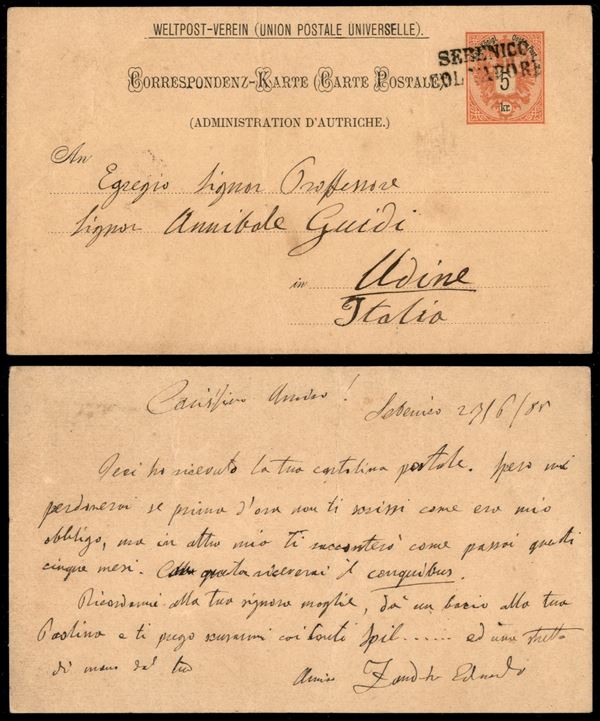 WELTPOST-VEREIN (UNION POSTALE UNIVERSELLE).
CORRESPONDENZ-KARTE (CARTE POSTALE)
(ADMINISTRATION D'AUTRICHE.)
SEBENICO
COL VAPORE
5
kr.
An
Egregio Signor Professore
Signor Annibale Guidi
in Udine
Italia
Carissimo Amico!
Sebenico 27/6/88
Ieri ho ricevuto la tua cartolina postale. Spero mi
perdonerai se prima d'ora non ti scrissi come era mio
obbligo, ma in altra mia ti racconterò come passai questi
cinque mesi. questa riceverai il conquibus.
Ricordami alla tua signora moglie, dà un bacio alla tua
Paolina e ti prego scusarmi coi ed una stretta
di mano dal tuo
Amico Eduardo